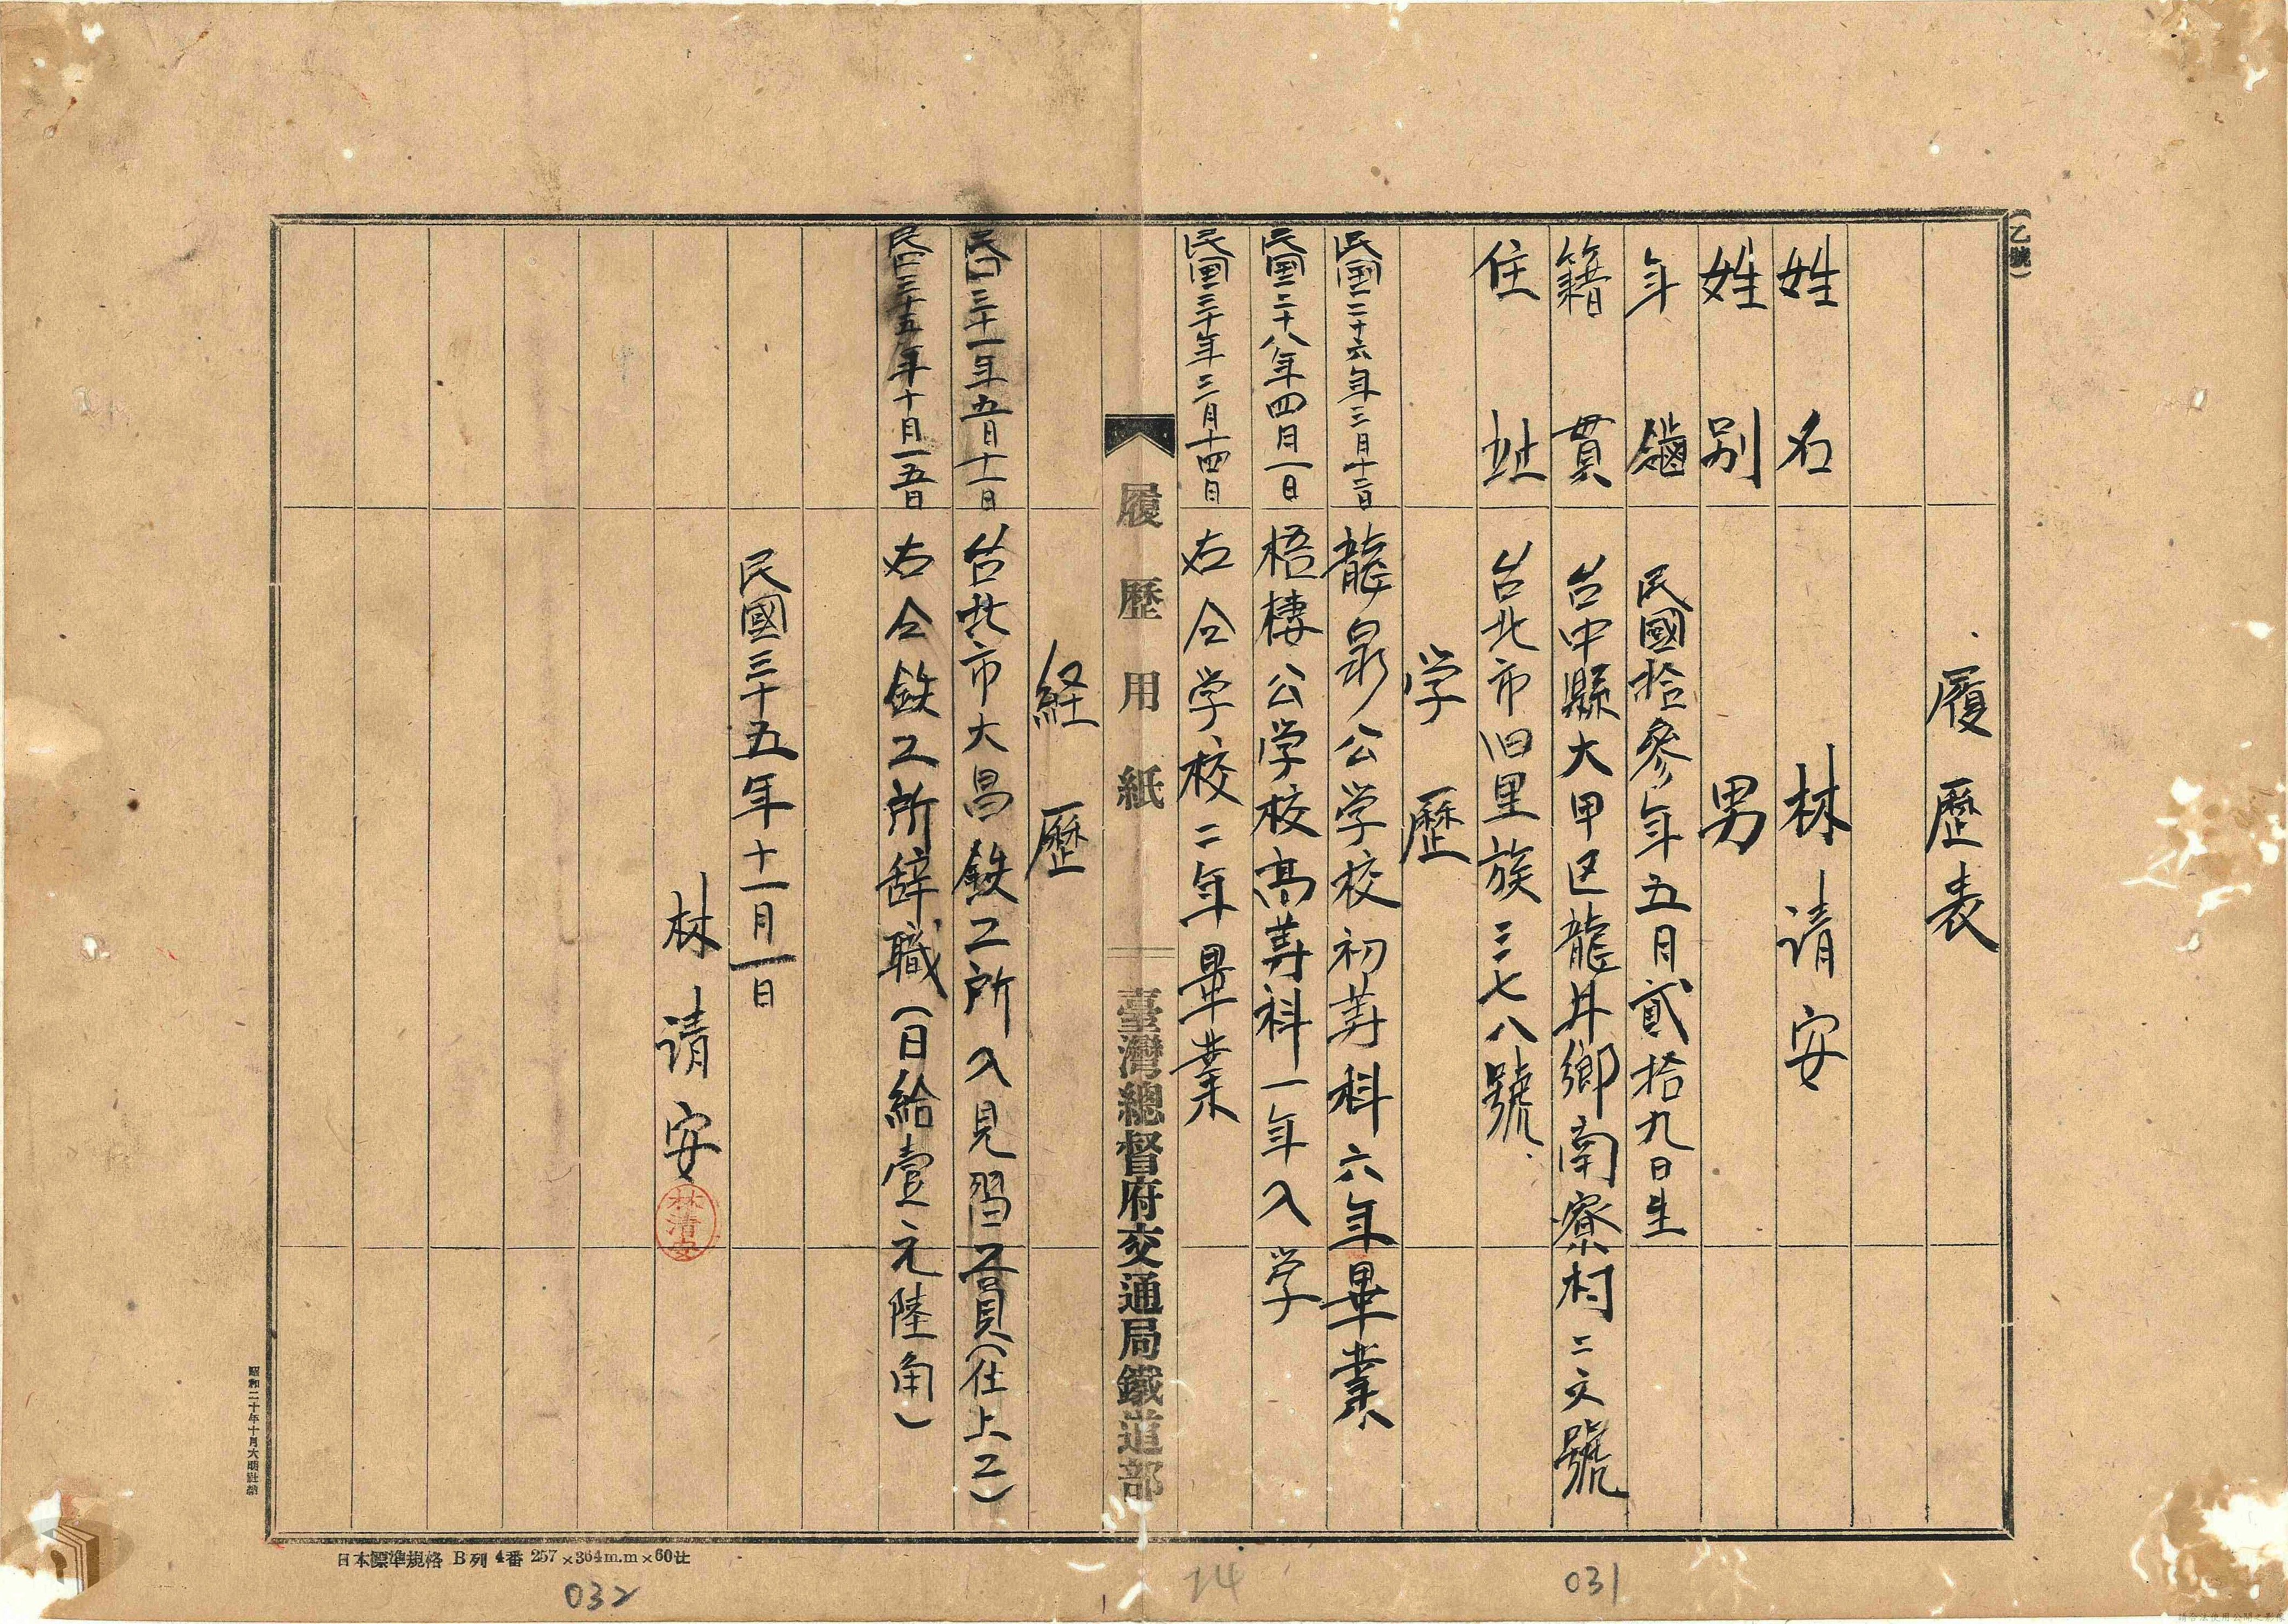 (乙號)
履歷表
姓名 林请安
姓别 男
年齡 民國拾參年五月貳拾九日生
籍貫 台中縣大甲区龍井鄉南寮村二文號
住址 台北市旧里族三七八號
学歷
民国二十六年三月十二日 龍泉公学校初等科六年畢業
民国二十八年四月一日 梧棲公学校高等科一年入学
民国三十年三月十四日 右仝学校二年畢業
履歷用紙 臺灣總督府交通局鐵道部
経歷
民国三十一年五月十一日 台北市大昌鉄工所入見習工員(仕上工)
民国三十五年十月一五日 右仝鉄工所辞職(日給壹元陸角)
民國三十五年十一月一日
林请安
林清安
昭和二十年十月大明社納
日本標準規格 B列 4番 257×364m.m×60仕
032
14
031